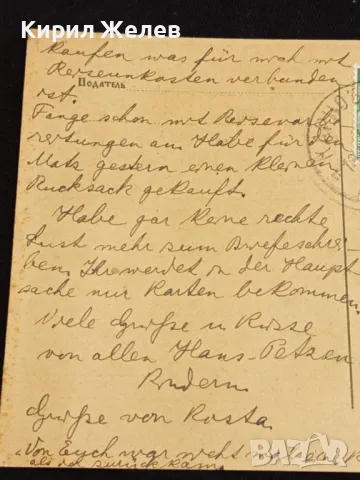 Кирил Желев
kaufen was für mich mit
Reiseunkosten verbunden
ist.
Податель
Fange schon mit Reisevorbe
reitungen an. Habe für den
Matz gestern einen kleinen
Rucksack gekauft.
Habe gar keine rechte
Lust mehr zum Briefeschrei
ben. Ihr werdet in der Haupt
sache nur Karten bekommen.
Viele Grüße u Küsse
von allen Hans-Petzen
Brüdern.
Grüße von Kosta.
Von Euch war
als ich zurück kam.
bazar